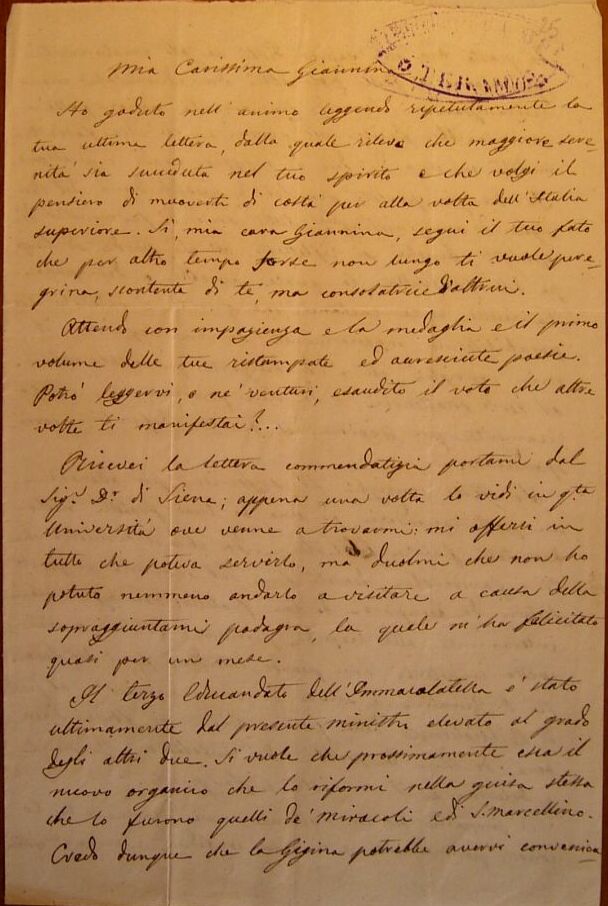 Mia Carissima Giannina
Ho goduto nell'animo leggendo ripetutamente la
tua ultima lettera, dalla quale rilevo che maggiore sere-
nità sia succeduta nel tuo spirito e che volgi il
pensiero di muoverti di costà per alla volta dell'Italia
superiore. Sì, mia cara Giannina, segui il tuo fato
che per altro tempo forse non lungo ti vuole pere-
grina, scontenta di te, ma consolatrice d'altrui.
Attendo con impazienza e la medaglia e il primo
volume delle tue ristampate ed accresciute poesie.
Potrò leggervi, o ne' venturi, esaudito il voto che altre
volte ti manifestai?...
Ricevei la lettera commendatizia portami dal
Sigr. Dr. di Siena; appena una volta lo vidi in qta
Università ove venne a trovarmi: mi offersi in
tutto che poteva servirlo, ma duolmi che non ho
potuto nemmeno andarlo a visitare a causa della
sopraggiuntami podagra, la quale m'ha felicitato
quasi per un mese.
Il terzo Educandato dell'Immacolatella è stato
ultimamente dal presente ministro elevato al grado
degli altri due. Si vuole che prossimamente esca il
nuovo organico che lo riformi nella guisa stessa
che lo furono quelli de' Miracoli e di S. Marcellino.
Credo dunque che la Gigina potrebbe avervi convenien-